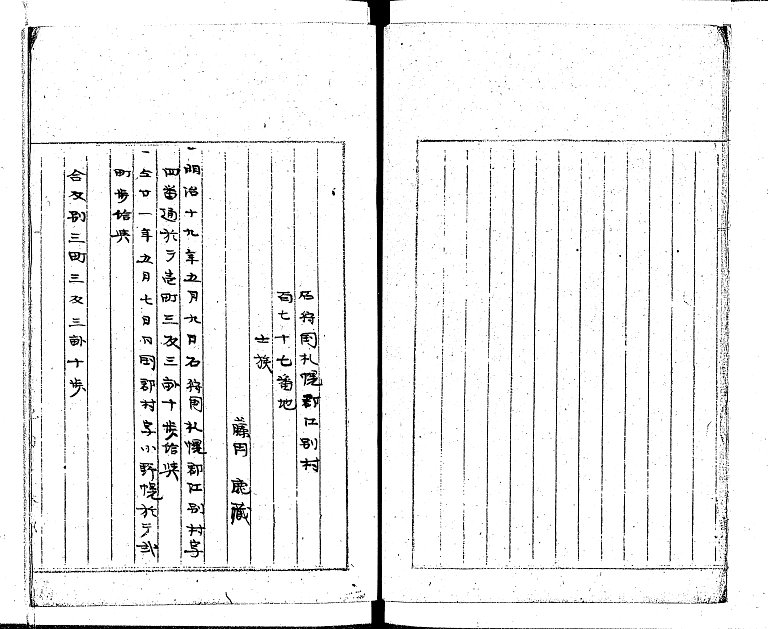 石狩国札幌郡江別村
百七十七番地
士族
藤田 蔵
一明治十九年五月九日石狩国札幌郡江別村字
四番通於テ壱町三反三畝十歩給与
一仝廿一年五月七日同国郡村字小野幌於テ弐
町歩給与
合反別三町三反三畝十歩